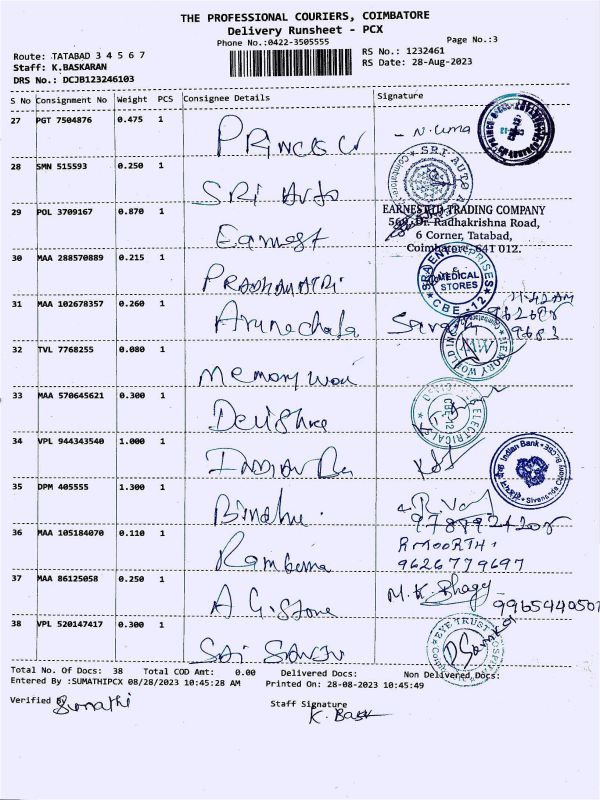 THE PROFESSIONAL COURIERS, COIMBATORE
Delivery Runsheet - PCX
Phone No.:0422-3505555
Page No.:3
Route: TATABAD 3 4 5 6 7
RS No.: 1232461
Staff: K.BASKARAN
RS Date: 28-Aug-2023
DRS No.: DCJB123246103
S No Consignment No Weight PCS Consignee Details Signature
27 PGT 7504876 0.475 1 - N. Uma
28 SMN 515593 0.250 1 SRI Auto
SRI AUTO
29 POL 3709167 0.870 1 Earnest
EARNEST TRADING COMPANY
Dr. Radhakrishna Road,
6 Corner, Tatabad,
Coimbatore-641 012.
30 MAA 288570889 0.215 1
ENTERPRISES
MEDICAL
STORES
CBE-12
31 MAA 102678357 0.260 1 Arunachala
32 TVL 7768255 0.080 1 Memory
MEMORY WORLD
33 MAA 570645621 0.300 1 Devishree
ELECTRICAL
34 VPL 944343540 1.000 1
Indian Bank
Sivananda Colony
35 DPM 405555 1.300 1 Bindhu
36 MAA 105184070 0.110 1
9626779697
37 MAA 86125058 0.250 1 A G. Stone M.K. Bhagy
38 VPL 520147417 0.300 1 SAI
EYE TRUST HOSPITAL
Total No. Of Docs: 38 Total COD Amt: 0.00 Delivered Docs: Non Delivered Docs:
Entered By :SUMATHIPCX 08/28/2023 10:45:28 AM Printed On: 28-08-2023 10:45:49
Verified By Sumathi
Staff Signature
K. Bask